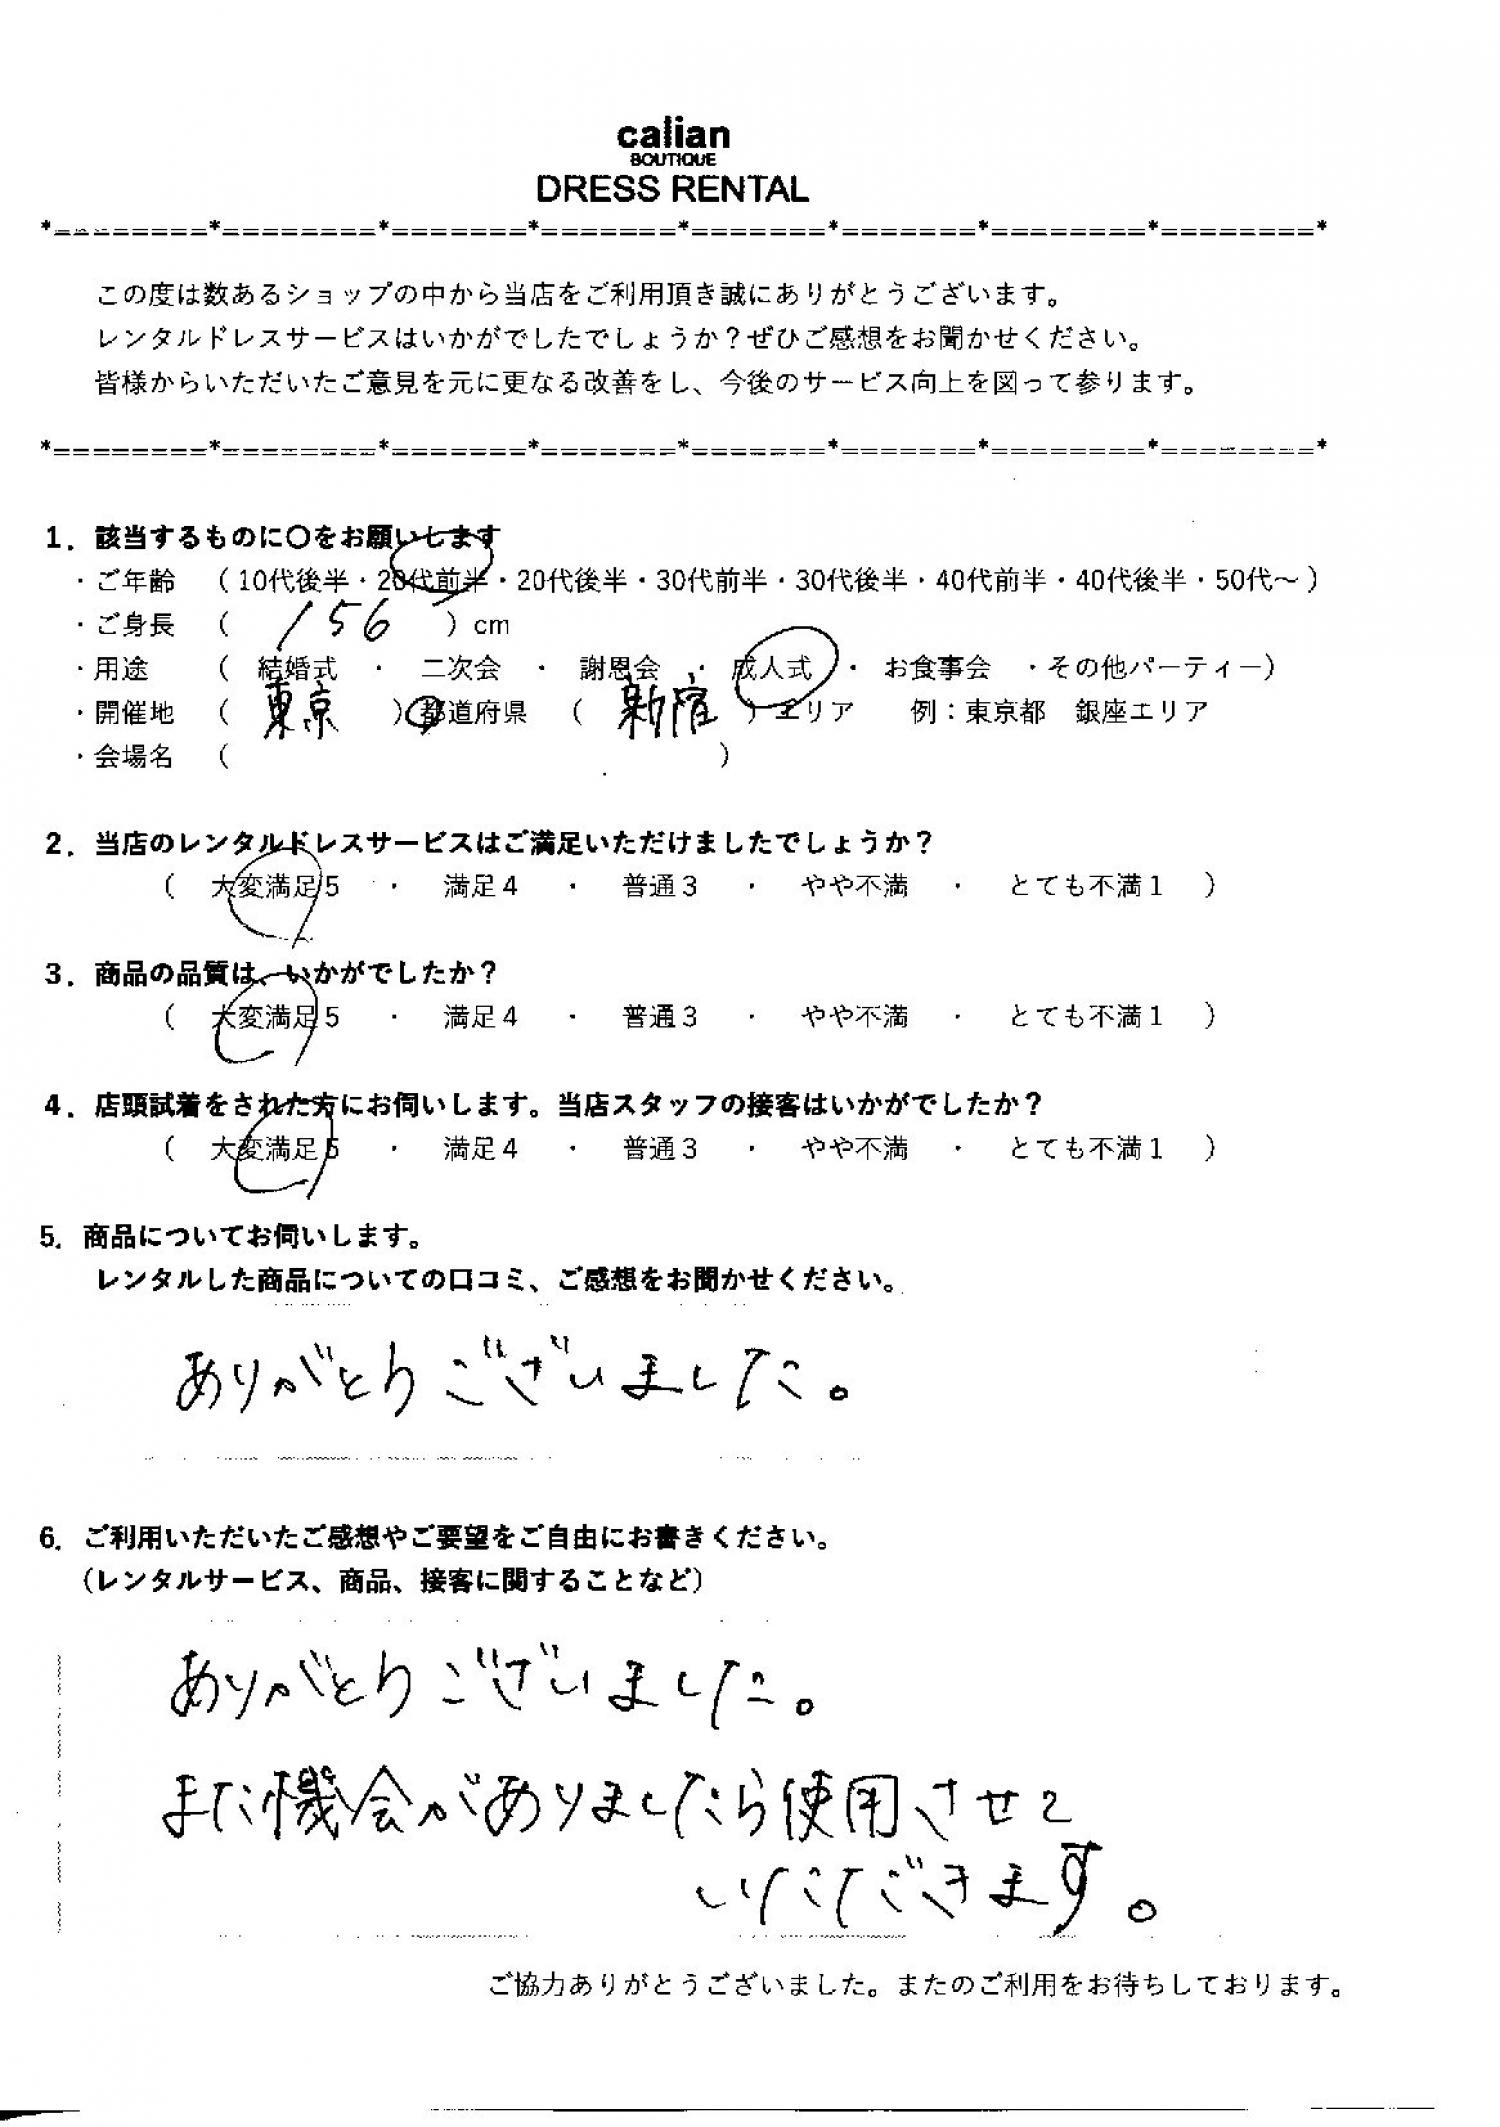 calian
BOUTIQUE
DRESS RENTAL
*========*========*=======*=======*=======*=======*========*========*
この度は数あるショップの中から当店をご利用頂き誠にありがとうございます。
レンタルドレスサービスはいかがでしたでしょうか？ぜひご感想をお聞かせください。
皆様からいただいたご意見を元に更なる改善をし、今後のサービス向上を図って参ります。
*========*========*=======*=======*=======*=======*========*========*
1．該当するものに〇をお願いします
・ご年齢 （10代後半・20代前半・20代後半・30代前半・30代後半・40代前半・40代後半・50代～）
・ご身長 （ 156 ）cm
・用途 （ 結婚式 ・ 二次会 ・ 謝恩会 ・ 成人式 ・ お食事会 ・その他パーティー）
・開催地 （ 東京 ）都道府県 （ 新宿 ）エリア 例：東京都 銀座エリア
・会場名 （ ）
2．当店のレンタルドレスサービスはご満足いただけましたでしょうか？
（ 大変満足5 ・ 満足4 ・ 普通3 ・ やや不満 ・ とても不満1 ）
3．商品の品質は、いかがでしたか？
（ 大変満足5 ・ 満足4 ・ 普通3 ・ やや不満 ・ とても不満1 ）
4．店頭試着をされた方にお伺いします。当店スタッフの接客はいかがでしたか？
（ 大変満足5 ・ 満足4 ・ 普通3 ・ やや不満 ・ とても不満1 ）
5．商品についてお伺いします。
レンタルした商品についての口コミ、ご感想をお聞かせください。
ありがとうございました。
6．ご利用いただいたご感想やご要望をご自由にお書きください。
（レンタルサービス、商品、接客に関することなど）
ありがとうございました。
また機会がありましたら使用させて
いただきます。
ご協力ありがとうございました。またのご利用をお待ちしております。